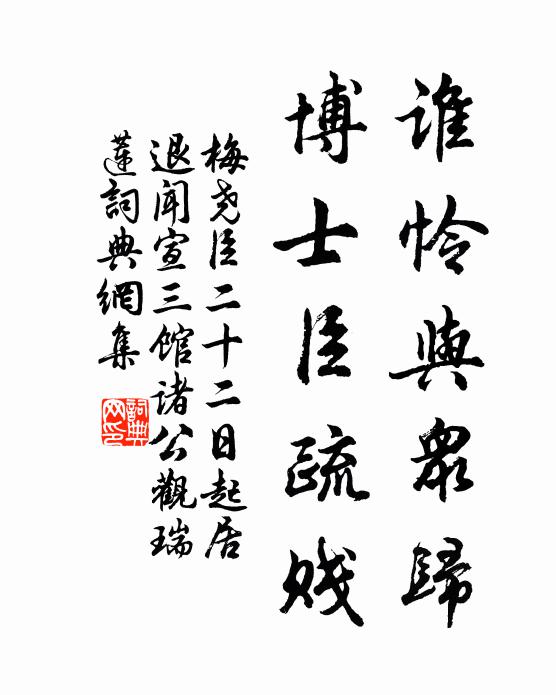 誰怜與眾歸
博士臣疏賤
梅堯臣二十二日起居
退聞宣三館諸公觀瑞
蓮詞典網集
詞典网印